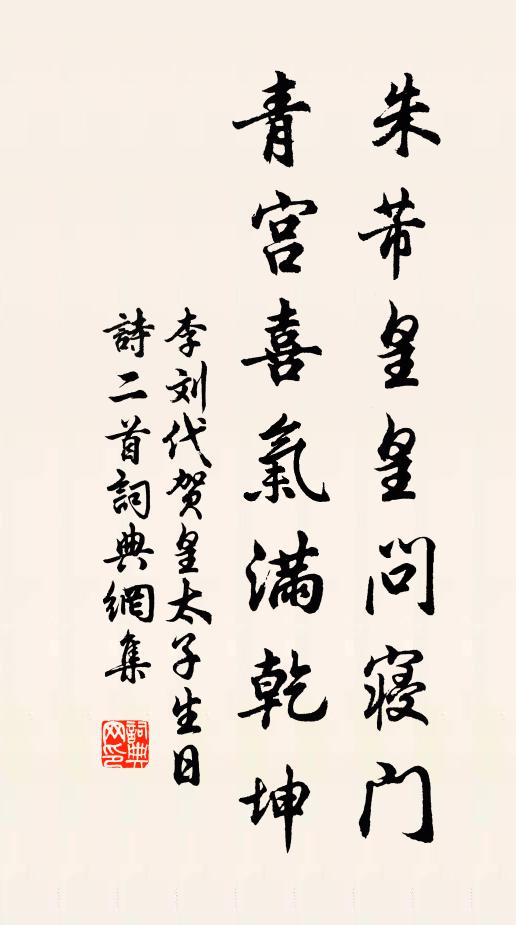 朱芾皇皇問寢門
青宮喜氣滿乾坤
李刘代贺皇太子生日
詩二首詞典網集
詞典網印